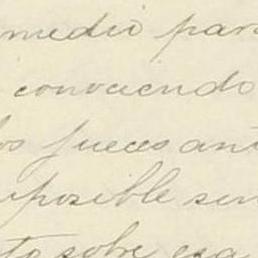 medio para
conociendo
los jueces ant
mposible sin
to sobre esa